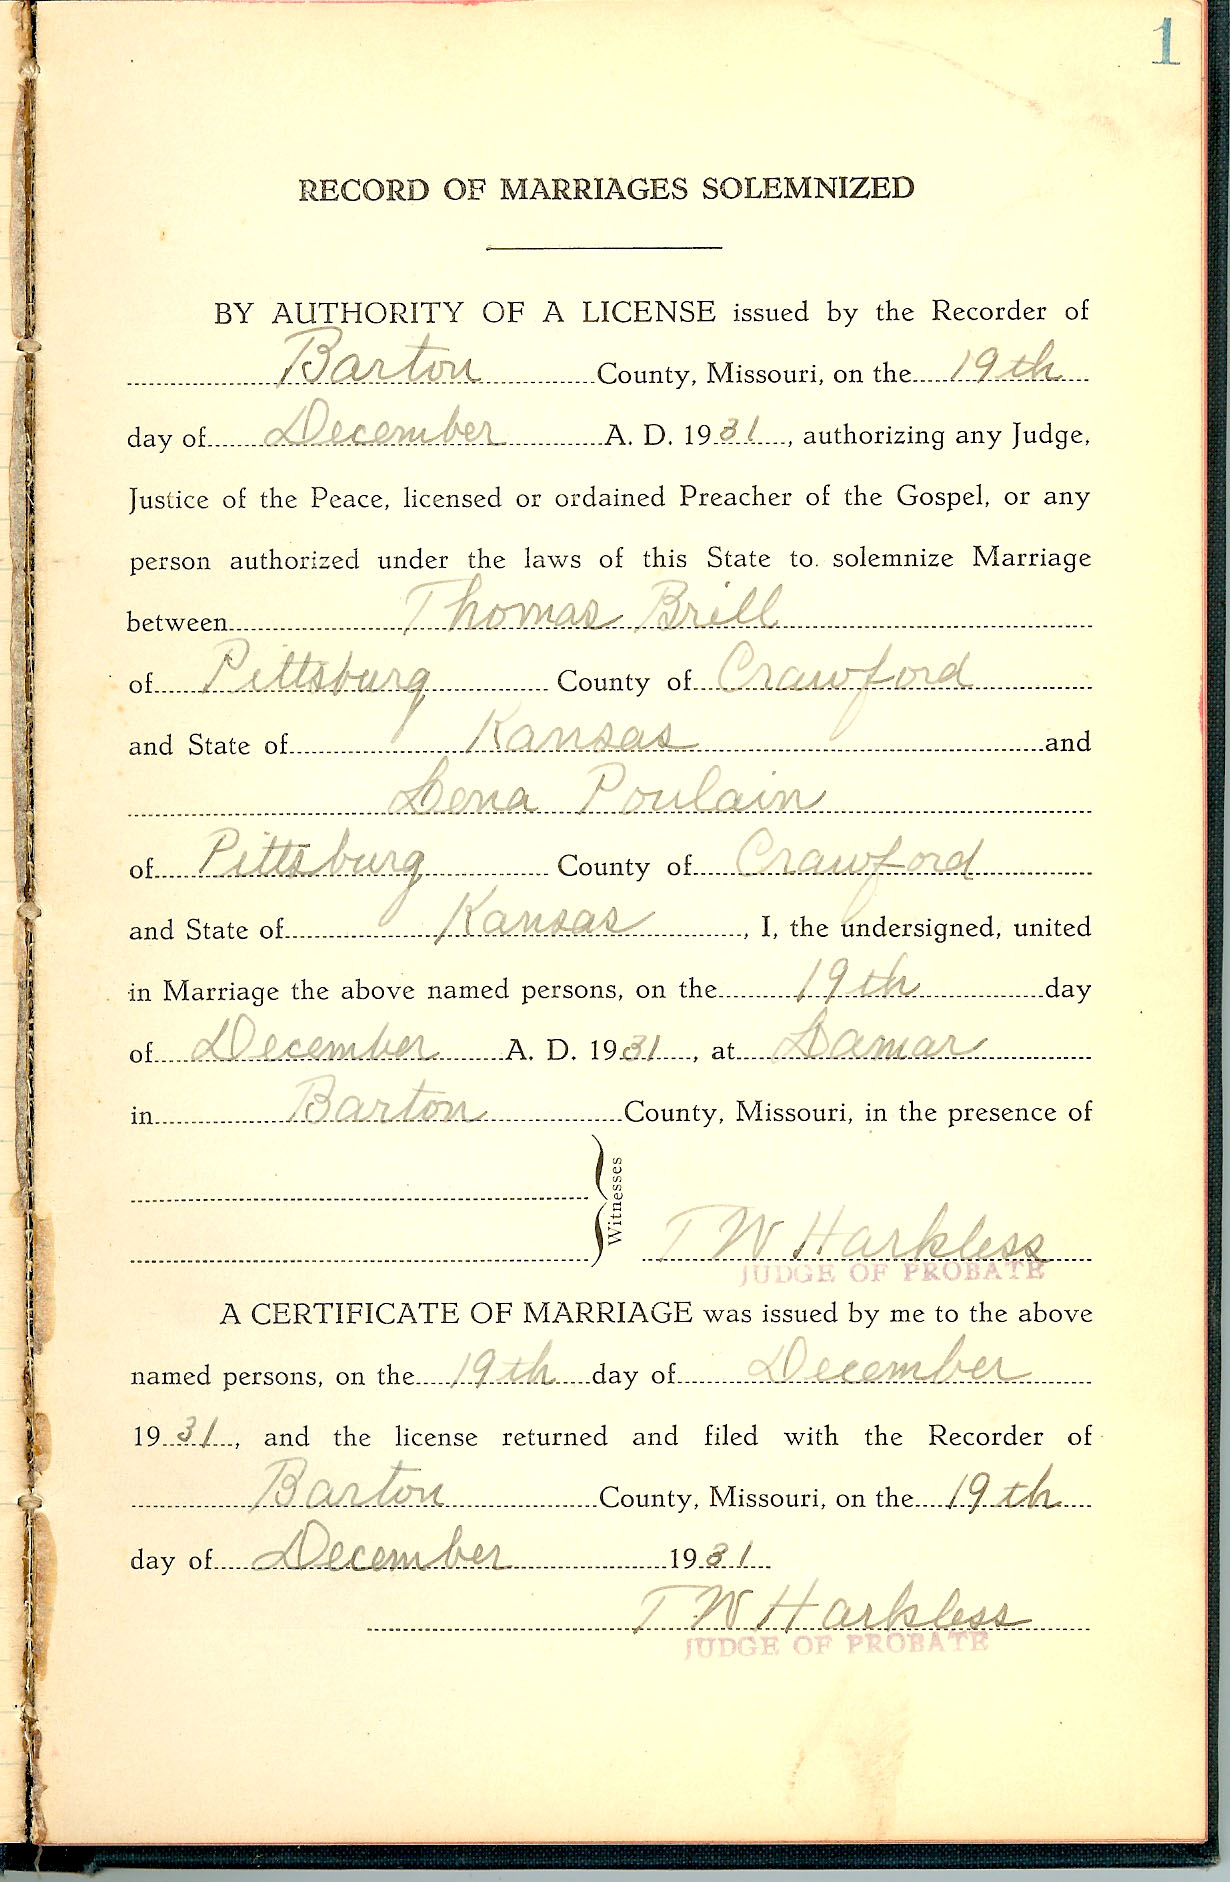 1
RECORD OF MARRIAGES SOLEMNIZED
BY AUTHORITY OF A LICENSE issued by the Recorder of
Barton County, Missouri, on the 19th
day of December A. D. 1931, authorizing any Judge,
Justice of the Peace, licensed or ordained Preacher of the Gospel, or any
person authorized under the laws of this State to solemnize Marriage
between Thomas Brill
of Pittsburg County of Crawford
and State of Kansas and
Lena Poulain
of Pittsburg County of Crawford
and State of Kansas, I, the undersigned, united
in Marriage the above named persons, on the 19th day
of December A. D. 1931, at Lamar
in Barton County, Missouri, in the presence of
Witnesses
T W Harkless
JUDGE OF PROBATE
A CERTIFICATE OF MARRIAGE was issued by me to the above
named persons, on the 19th day of December
1931, and the license returned and filed with the Recorder of
Barton County, Missouri, on the 19th
day of December 1931
T W Harkless
JUDGE OF PROBATE